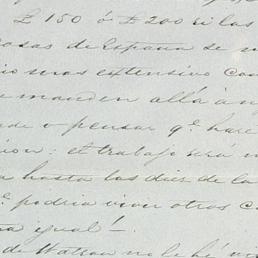 £ 150 ó £ 200 si las
cosas de España se
seras extensivo con
e manden allá á
de o pensar q.e hace
ion: el trabajo será
a hasta las dies de la
q.e podria vivir otros
ta igual!—
de Watson no le hé